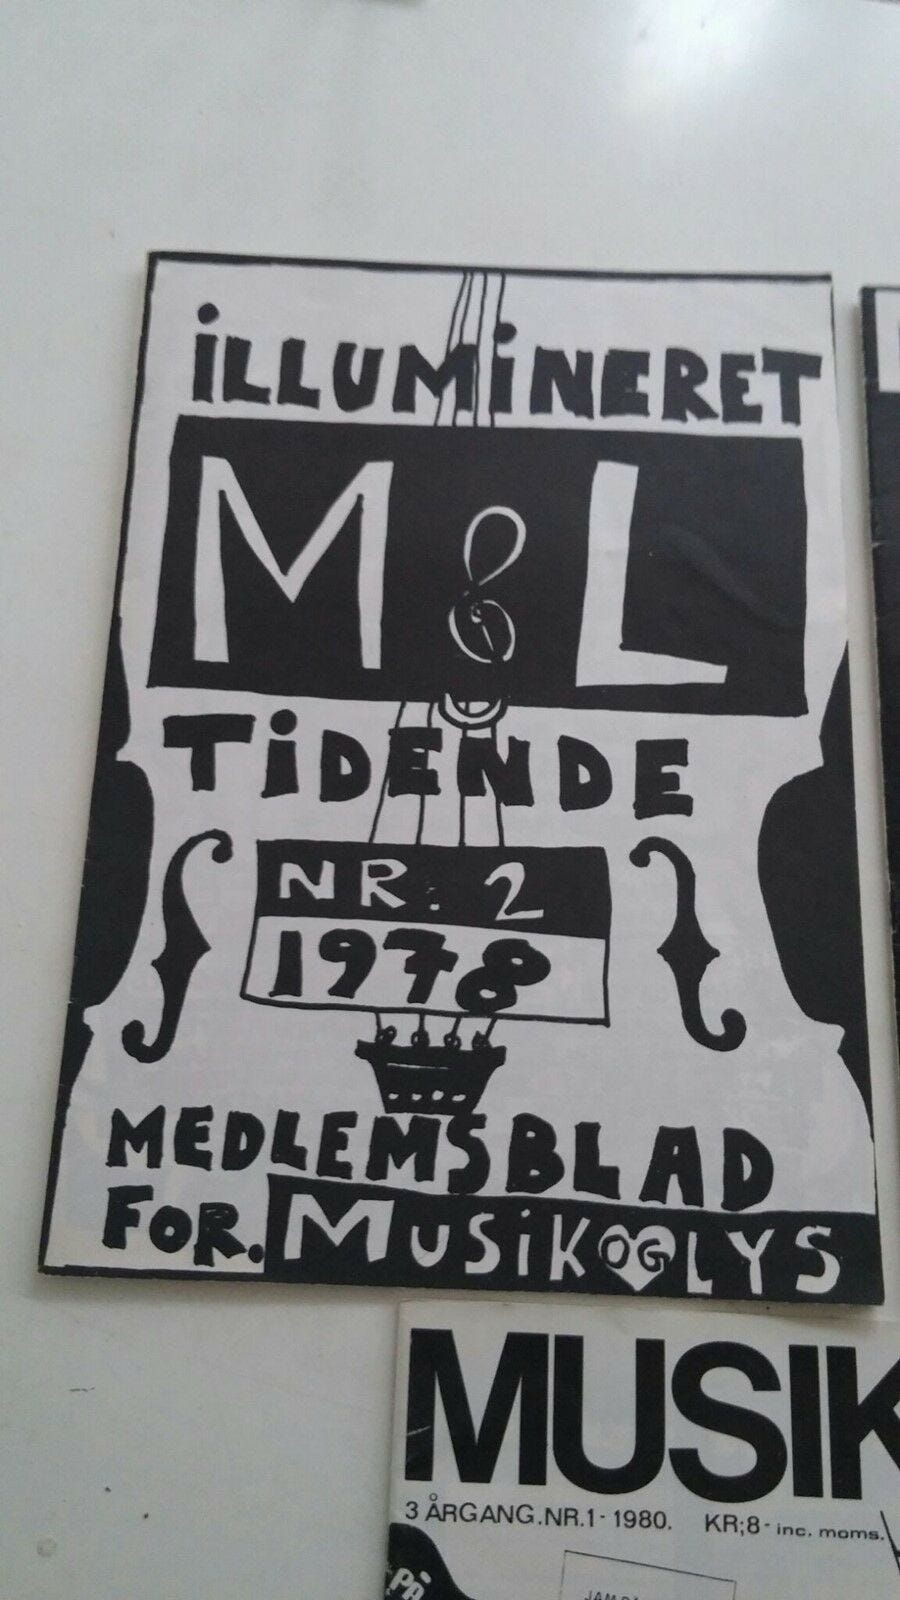 iLLUMiNERET
M & L
TiDENDE
NR. 2
1978
MEDLEMSBLAD
FOR. MUSiK OG LYS
MUSIK
3 ÅRGANG.NR.1- 1980. KR;8- inc. moms.
PÅ